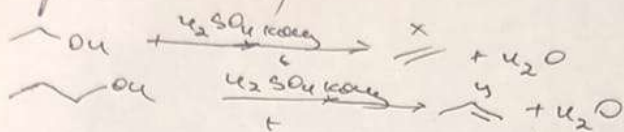 OH + H₂SO₄ конц x + H₂O
t
OH H₂SO₄ конц y + H₂O
t